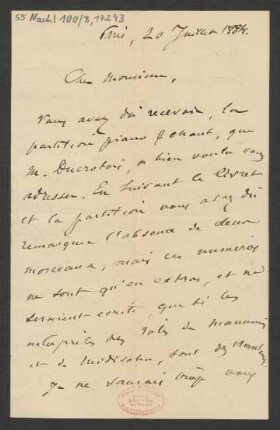 55 Nachl 100/B, 17243
20 Juillet 1884.
Cher Monsieur,
Vous avez dû recevoir, la
partition piano & chant, que
M. a bien voulu vous
adresser. En suivant le livret
et la partition vous avez dû
remarquer l'absence de deux
morceaux, mais ces numéros
ne sont qu'en extras, et ne
seraient écrits, que si les
interprètes des rôles de
et de sont des
Je ne saurais trop vous